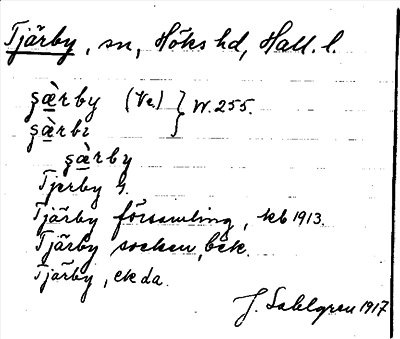 Tjärby, sn, Höks hd, Hall. l.
ʂæ̀rby (Ve.) } W. 255.
ʂæ̀rbɪ
ʂæ̀rby
Tjerby s.
Tjärby församling, kb 1913.
Tjärby socken, bek.
Tjärby, ekda.
J. Sahlgren 1917